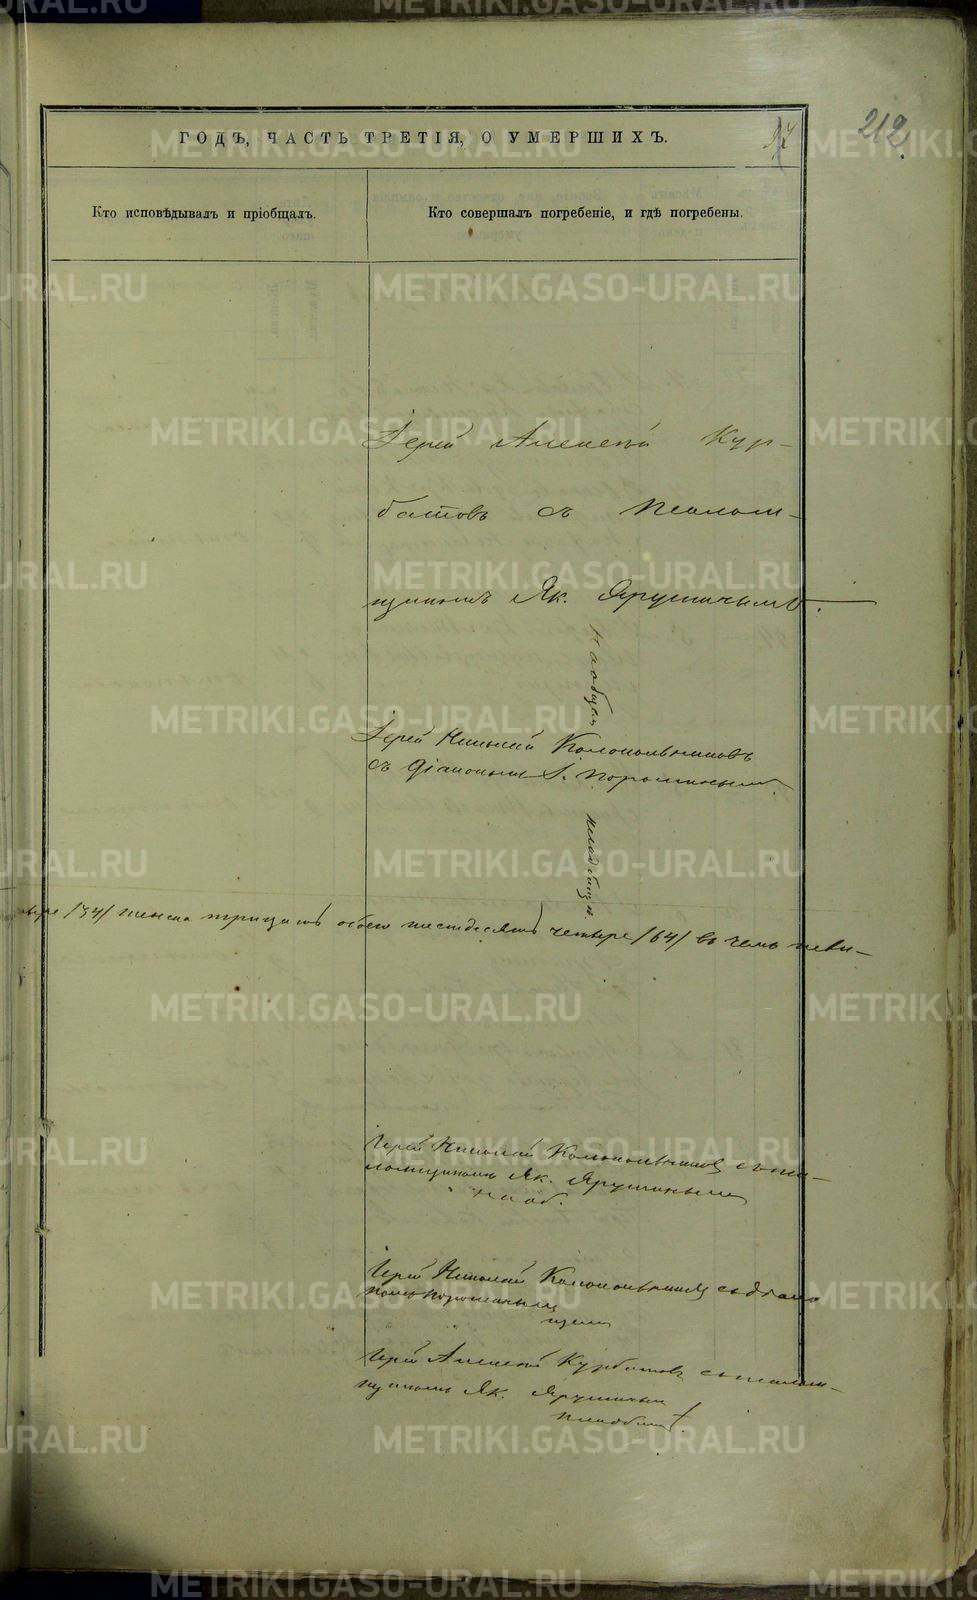 212
97
ГОДЪ, ЧАСТЬ ТРЕТІЯ, О УМЕРШИХЪ.
Кто исповѣдывалъ и пріобщалъ.
Кто совершалъ погребеніе, и гдѣ погребены.
Іерей Алексѣй Кур-
батовъ съ Псалом-
щикомъ Як. Ярушинымъ.
На общемъ
Іерей Николай Колокольниковъ
съ діакономъ І. Порошинымъ.
кладбищѣ.
/34/ женска тридцать обоего шестьдесятъ четыре /64/ въ чемъ
Іерей Николай Колокольниковъ съ пса-
ломщикомъ Як. Ярушинымъ
на об.
Іерей Николай Колокольниковъ съ діако-
номъ Порошинымъ
щемъ
Іерей Алексѣй Курбатовъ съ псалом-
щикомъ Як. Ярушинымъ
кладбищѣ.
METRIKI.GASO-URAL.RU